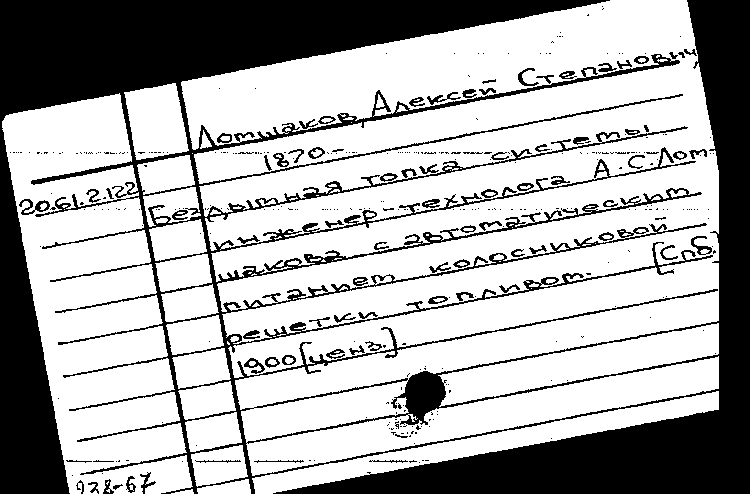 Ломшаков, Алексей Степанович,
1870-
20.61.2.122. Бездымная топка системы
инженер-технолога А.С.Лом-
шакова с автоматическим
питанием колосниковой
решетки топливом. [Спб.
1900 [ценз.].
238-67